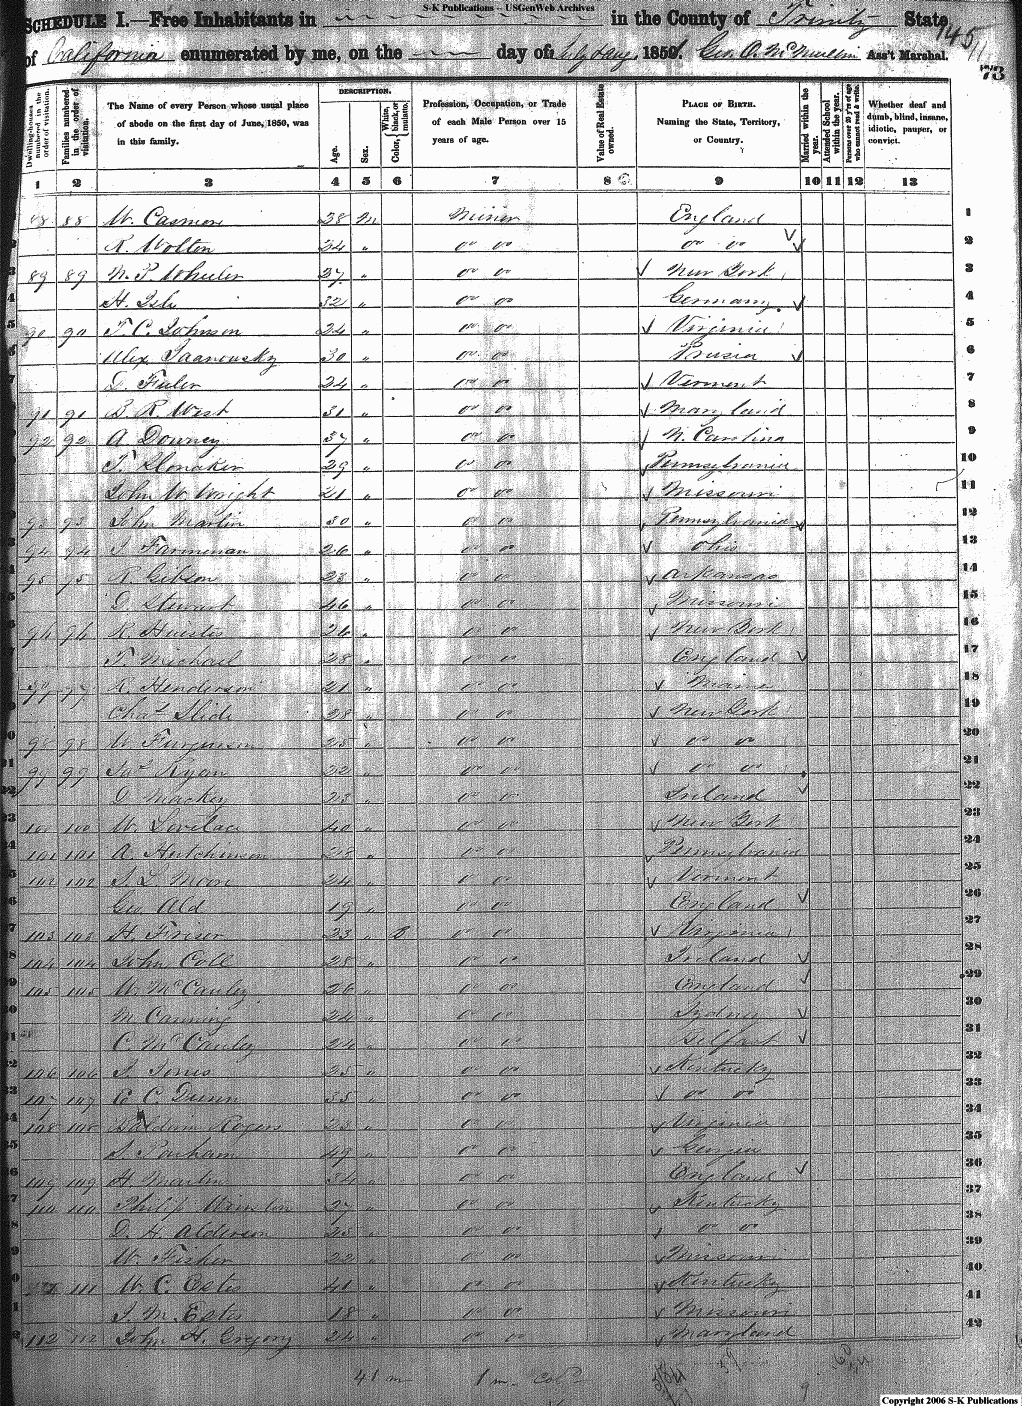 S-K Publications -- USGenWeb Archives
SCHEDULE I.—Free Inhabitants in in the County of Trinity State
of California enumerated by me, on the day of July & Aug. 1850. Geo. O. McMullin Ass't Marshal.
145
73
Dwelling-houses numbered in the order of visitation.
Families numbered in the order of visitation.
The Name of every Person whose usual place of abode on the first day of June, 1850, was in this family.
DESCRIPTION.
Age.
Sex.
Color, White, black, or mulatto.
Profession, Occupation, or Trade of each Male Person over 15 years of age.
Value of Real Estate owned.
PLACE OF BIRTH. Naming the State, Territory, or Country.
Married within the year.
Attended School within the year.
Persons over 20 y'rs of age who cannot read & write.
Whether deaf and dumb, blind, insane, idiotic, pauper, or convict.
1 2 3 4 5 6 7 8 9 10 11 12 13
88 88 W. Casmon 28 M Miner England 1
R. Wolton 24 " " " " " 2
89 89 M. P. Wheeler 27 " " " New York 3
H. Isle 32 " " " Germany 4
90 90 T. C. Johnson 24 " " " Virginia 5
Alex 30 " " " Prusia 6
D. Fuler 24 " " " Vermont 7
91 91 B. R. West 31 " " " Maryland 8
92 92 A. Downey 37 " " " N. Carolina 9
T. Slonaker 29 " " " Pennsylvania 10
John W. Wright 21 " " " Missouri 11
93 93 John Martin 30 " " " Pennsylvania 12
94 94 J. Farmenan 26 " " " Ohio 13
95 95 R. Gibson 23 " " " Arkansas 14
D. Stewart 46 " " " Missouri 15
96 96 R. 26 " " " New York 16
T. Michael 28 " " " England 17
97 97 R. Henderson 21 " " " Maine 18
Chas. Slide 28 " " " New York 19
98 98 W. Furguson 25 " " " " " 20
99 99 Jas. Ryan 22 " " " " " 21
D. Mackey 23 " " " Ireland 22
100 100 W. Lovelace 40 " " " New York 23
101 101 A. Hutchinson 28 " " " Pennsylvania 24
102 102 S. L. Moon 24 " " " Vermont 25
Geo. Ald 19 " " " England 26
103 103 H. Friser 23 " B " " Virginia 27
104 104 John Coll 28 " " " Ireland 28
105 105 W. McCauley 26 " " " England 29
M. Canning 24 " " " Sydney 30
C. McCauley 24 " " " Belfast 31
106 106 S. Jones 25 " " " Kentucky 32
107 107 C. C. Dunn 35 " " " " " 33
108 108 Baldwin Rogers 23 " " " Virginia 34
S. Parham 49 " " " Georgia 35
109 109 H. Martin 34 " " " England 36
110 110 Philip 27 " " " Kentucky 37
D. H. Alderson 25 " " " " " 38
W. Fisher 22 " " " Missouri 39
111 111 W. C. Estes 41 " " " Kentucky 40
J. M. Estes 18 " " " Missouri 41
112 112 John H. Gregory 24 " " " Maryland 42
41 m 1 m. cold.
Copyright 2006 S-K Publications